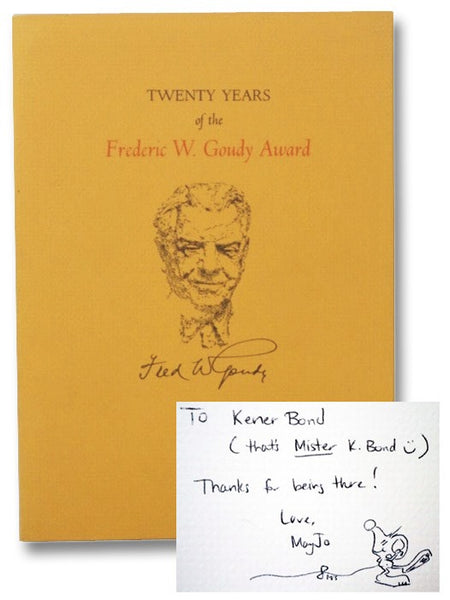 TWENTY YEARS
of the
Frederic W. Goudy Award
Fred W Goudy
To Kener Bond
(that's Mister K. Bond ☺)
Thanks for being there!
Love,
MayJo